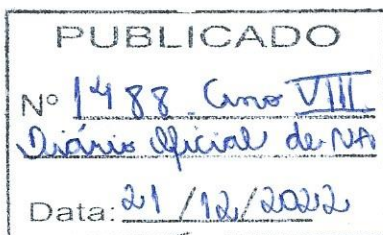 PUBLICADO
Nº 1488 Ano VIII
Diário Oficial de NA
Data: 21/12/2022